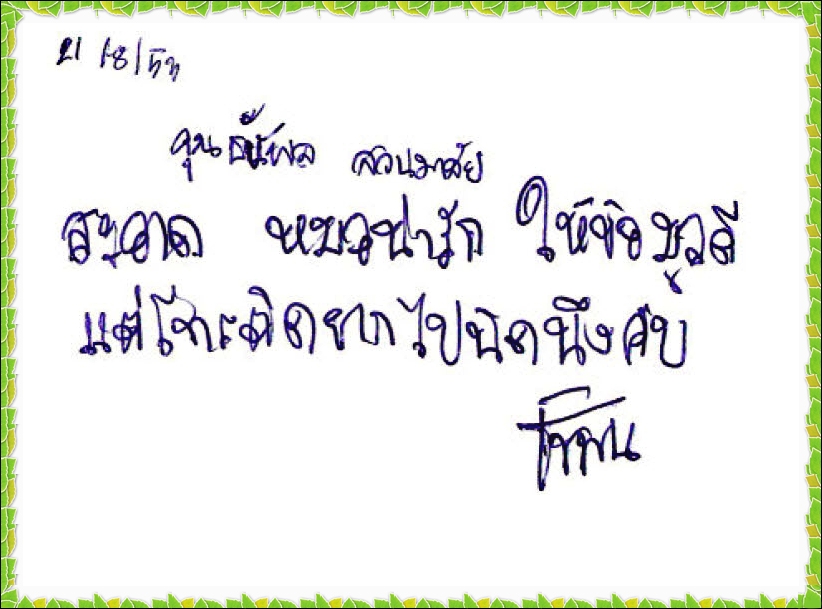 21/8/55
คุณธันพล สวนมาลัย
สะอาด หมอน่ารัก ให้ข้อมูลดี
แต่โทรติดยากไปนิดนึงครับ